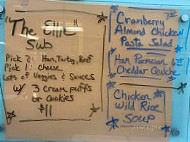 "The Ellie"
Sub
Pick 2: Ham, Turkey, Beef
Pick 1: Cheese
Lots of Veggies & Sauces
w/ 3 cream puffs
or cookies
$11
Cranberry
Almond Chicken
Pasta Salad
Ham Parmesan
Cheddar Quiche
Chicken
Wild Rice
Soup